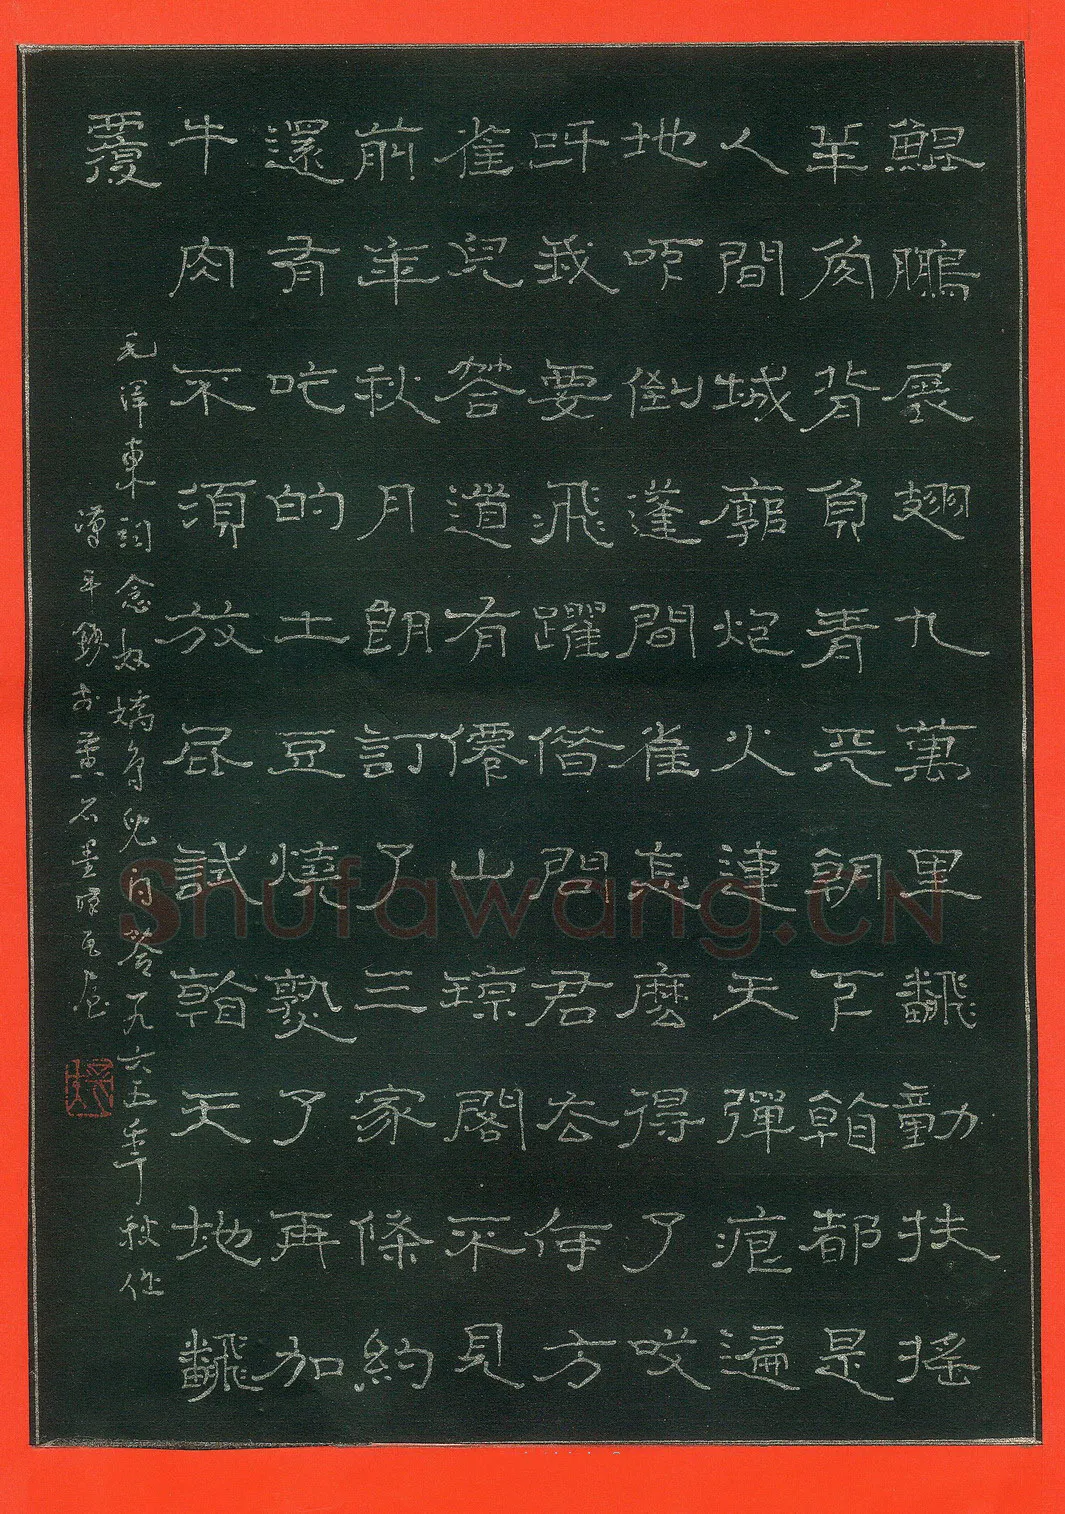 鯤鵬展翅九萬里飜動扶搖
羊角背負青天朝下看都是
人間城廓炮火連天彈痕遍
地吓倒蓬間雀怎麼得了哎
呀我要飛躍借問君去何方
雀兒答道有僊山瓊閣不見
前年秋月朗訂了三家條約
還有吃的土豆燒熟了再加
牛肉不須放屁試看天地飜
覆
毛澤東詞念奴嬌鳥兒問答一九六五年秋作
Shufawang.CN